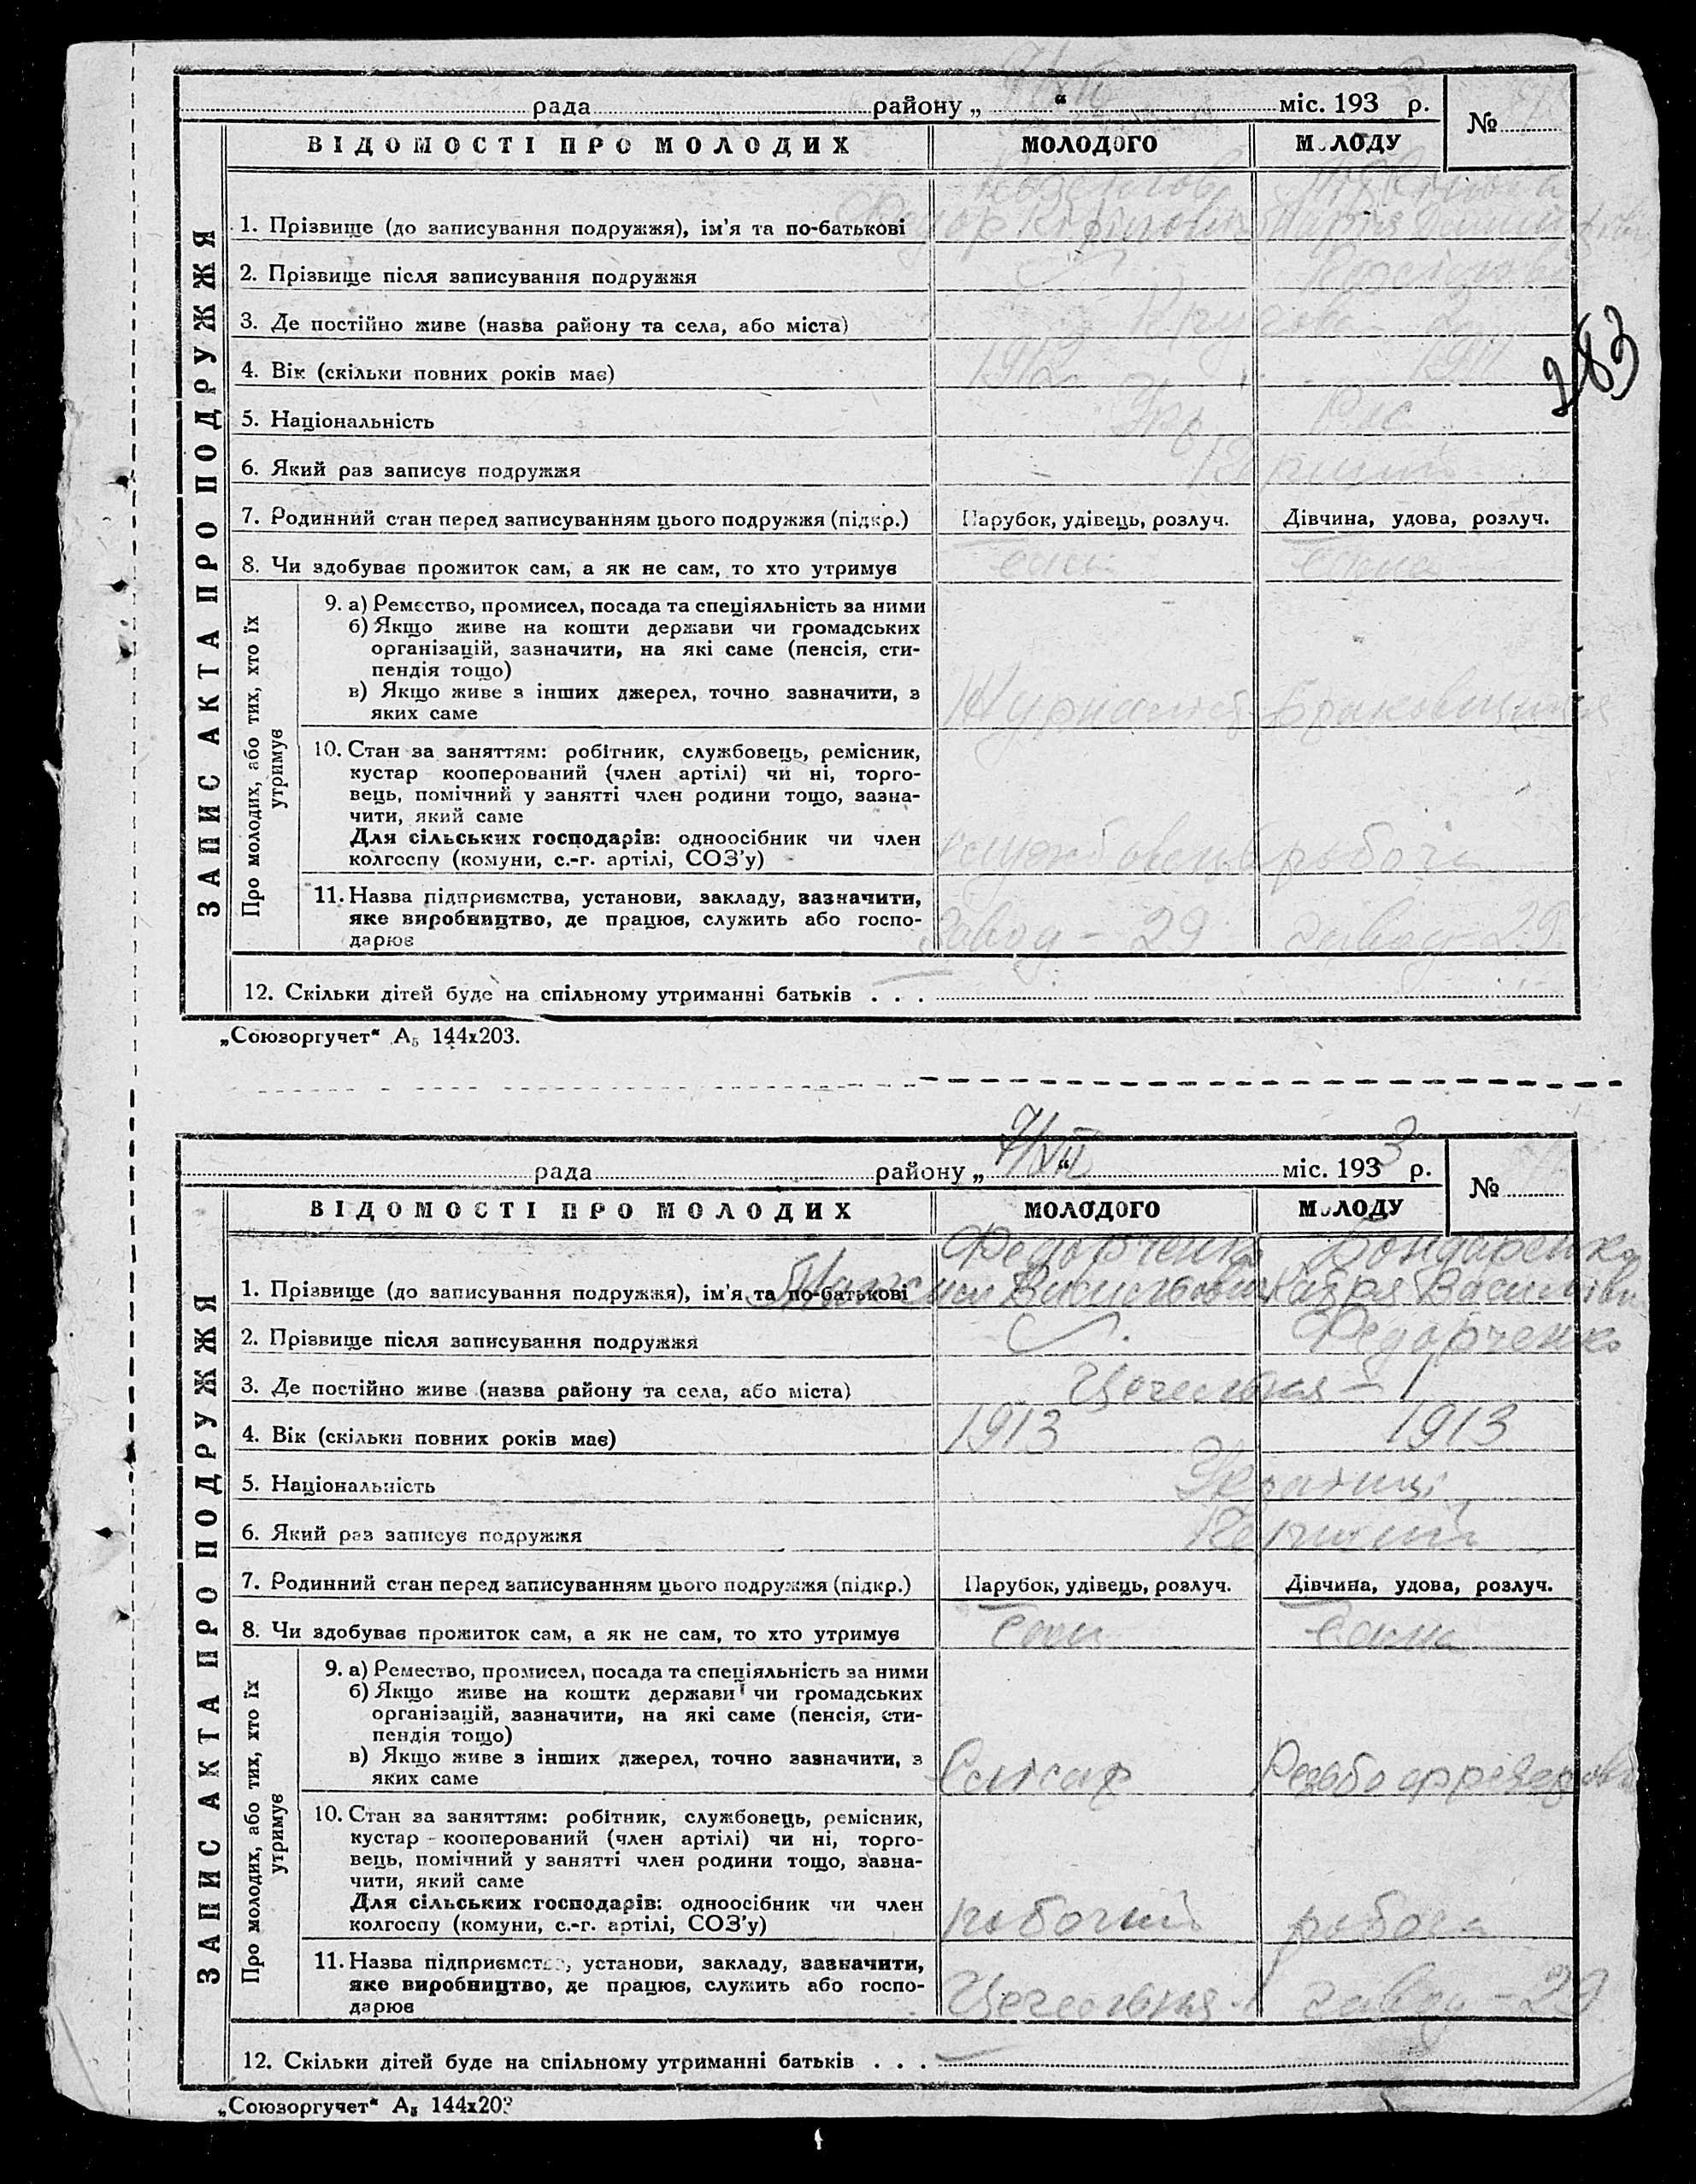 рада району „ “ міс. 193 р.
№
ВІДОМОСТІ ПРО МОЛОДИХ МОЛОДОГО МОЛОДУ
ЗАПИС АКТА ПРО ПОДРУЖЖЯ
1. Прізвище (до записування подружжя), ім'я та по-батькові
2. Прізвище після записування подружжя
3. Де постійно живе (назва району та села, або міста)
283
4. Вік (скільки повних років має) 1912 1911
5. Національність Укр Рос
6. Який раз записує подружжя Перший
7. Родинний стан перед записуванням цього подружжя (підкр.) Парубок, удівець, розлуч. Дівчина, удова, розлуч.
8. Чи здобуває прожиток сам, а як не сам, то хто утримує сам сама
Про молодих, або тих, хто їх
утримує
9. а) Ремество, промисел, посада та спеціяльність за ними
б) Якщо живе на кошти держави чи громадських
організацій, зазначити, на які саме (пенсія, сти-
пендія тощо)
в) Якщо живе з інших джерел, точно зазначити, з
яких саме Журналіст Браковщиця
10. Стан за заняттям: робітник, службовець, ремісник,
кустар кооперований (член артілі) чи ні, торго-
вець, помічний у занятті член родини тощо, зазна-
чити, який саме
Для сільських господарів: одноосібник чи член
колгоспу (комуни, с.-г. артілі, СОЗ'у) службовець
11. Назва підприємства, установи, закладу, зазначити,
яке виробництво, де працює, служить або госпо-
дарює завод - 29 завод - 29
12. Скільки дітей буде на спільному утриманні батьків . . .
„Союзоргучет“ А₅ 144х203.
рада району „ 7/VII “ міс. 193 3 р.
№
ВІДОМОСТІ ПРО МОЛОДИХ МОЛОДОГО МОЛОДУ
ЗАПИС АКТА ПРО ПОДРУЖЖЯ
Федорченко Бондаренко
1. Прізвище (до записування подружжя), ім'я та по-батькові Катря Василівн
2. Прізвище після записування подружжя Федорченко
3. Де постійно живе (назва району та села, або міста)
4. Вік (скільки повних років має) 1913 1913
5. Національність Українці
6. Який раз записує подружжя Перший
7. Родинний стан перед записуванням цього подружжя (підкр.) Парубок, удівець, розлуч. Дівчина, удова, розлуч.
8. Чи здобуває прожиток сам, а як не сам, то хто утримує Сам Сама
Про молодих, або тих, хто їх
утримує
9. а) Ремество, промисел, посада та спеціяльність за ними
б) Якщо живе на кошти держави чи громадських
організацій, зазначити, на які саме (пенсія, сти-
пендія тощо)
в) Якщо живе з інших джерел, точно зазначити, з
яких саме Слісар
10. Стан за заняттям: робітник, службовець, ремісник,
кустар - кооперований (член артілі) чи ні, торго-
вець, помічний у занятті член родини тощо, зазна-
чити, який саме
Для сільських господарів: одноосібник чи член
колгоспу (комуни, с.-г. артілі, СОЗ'у) робочий робоча
11. Назва підприємства, установи, закладу, зазначити,
яке виробництво, де працює, служить або госпо-
дарює завод - 29
12. Скільки дітей буде на спільному утриманні батьків . . .
„Союзоргучет“ А₅ 144х203